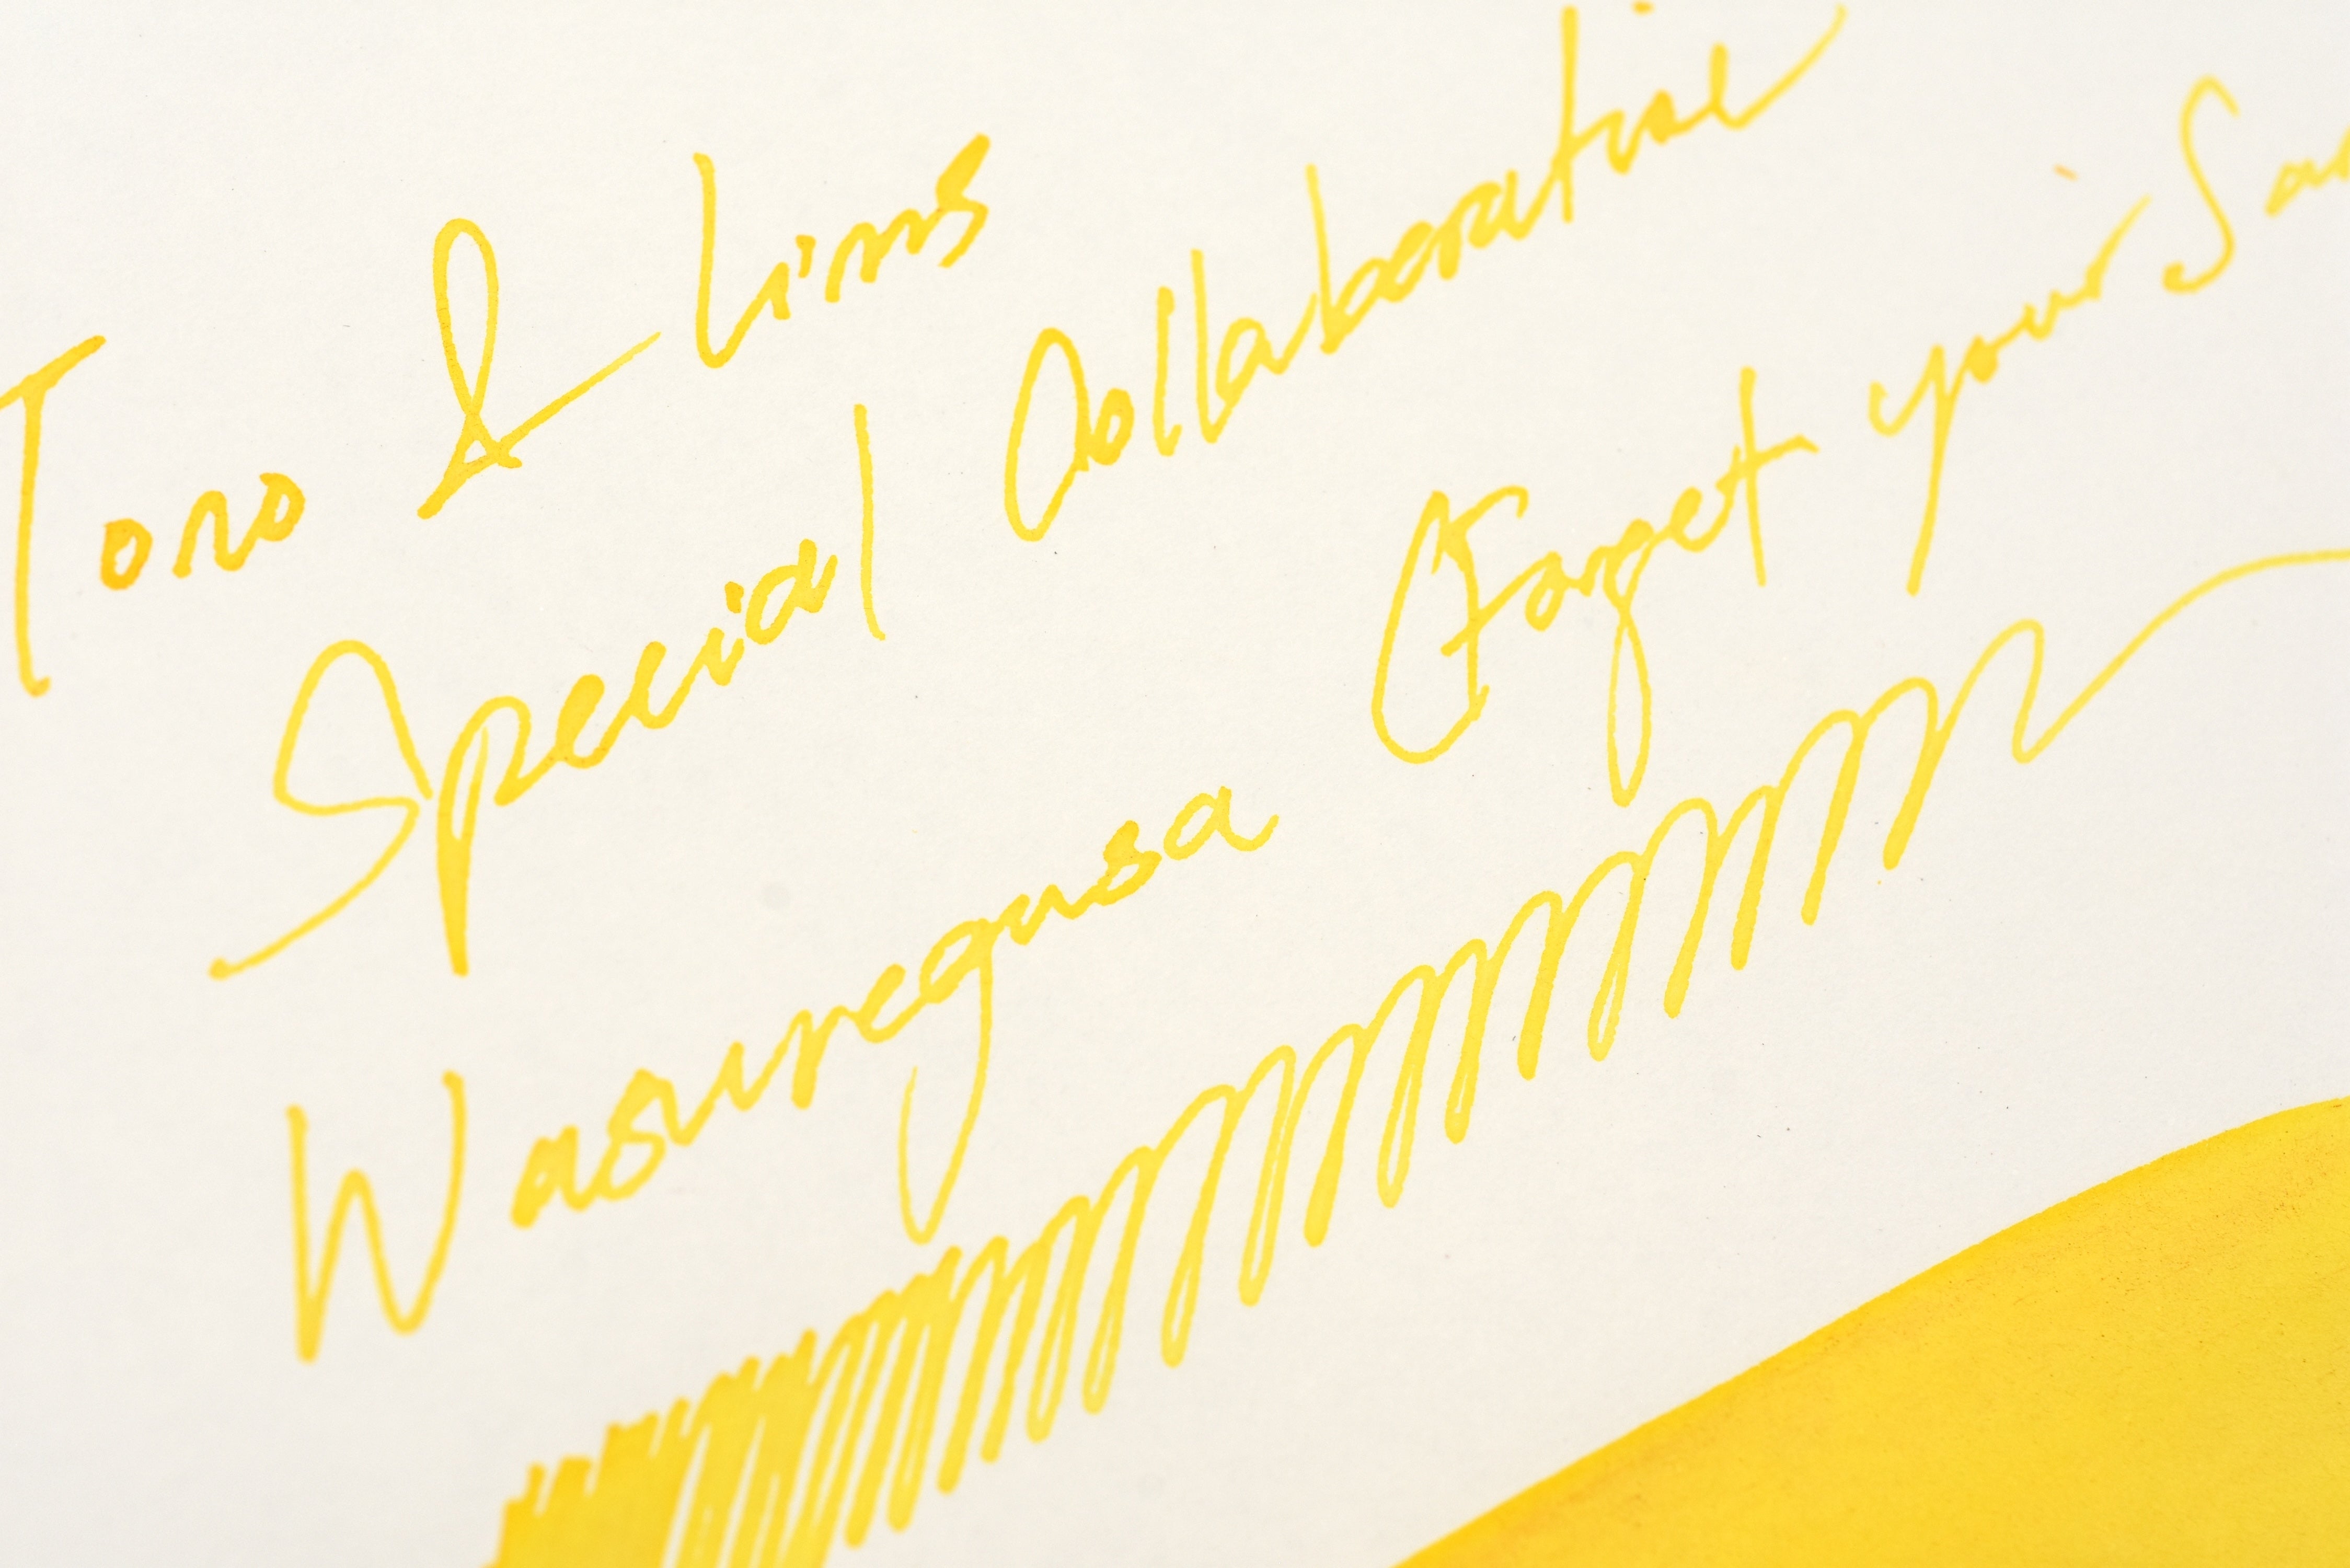 Toro & Lims
Special Collaboration
Wasuregusa (Forget your